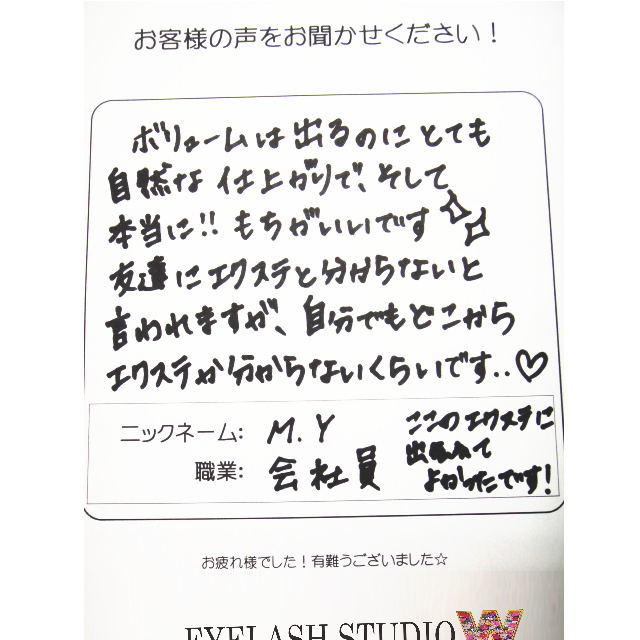 お客様の声をお聞かせください！
ボリュームは出るのにとても
自然な仕上がりで、そして
本当に!! もちがいいです
友達にエクステと分からないと
言われますが、自分でもどこから
エクステか分からないくらいです..♡
ニックネーム: M.Y
職業: 会社員
ここのエクステに
出会えて
よかったです!
お疲れ様でした！有難うございました☆
EYELASH STUDIO W